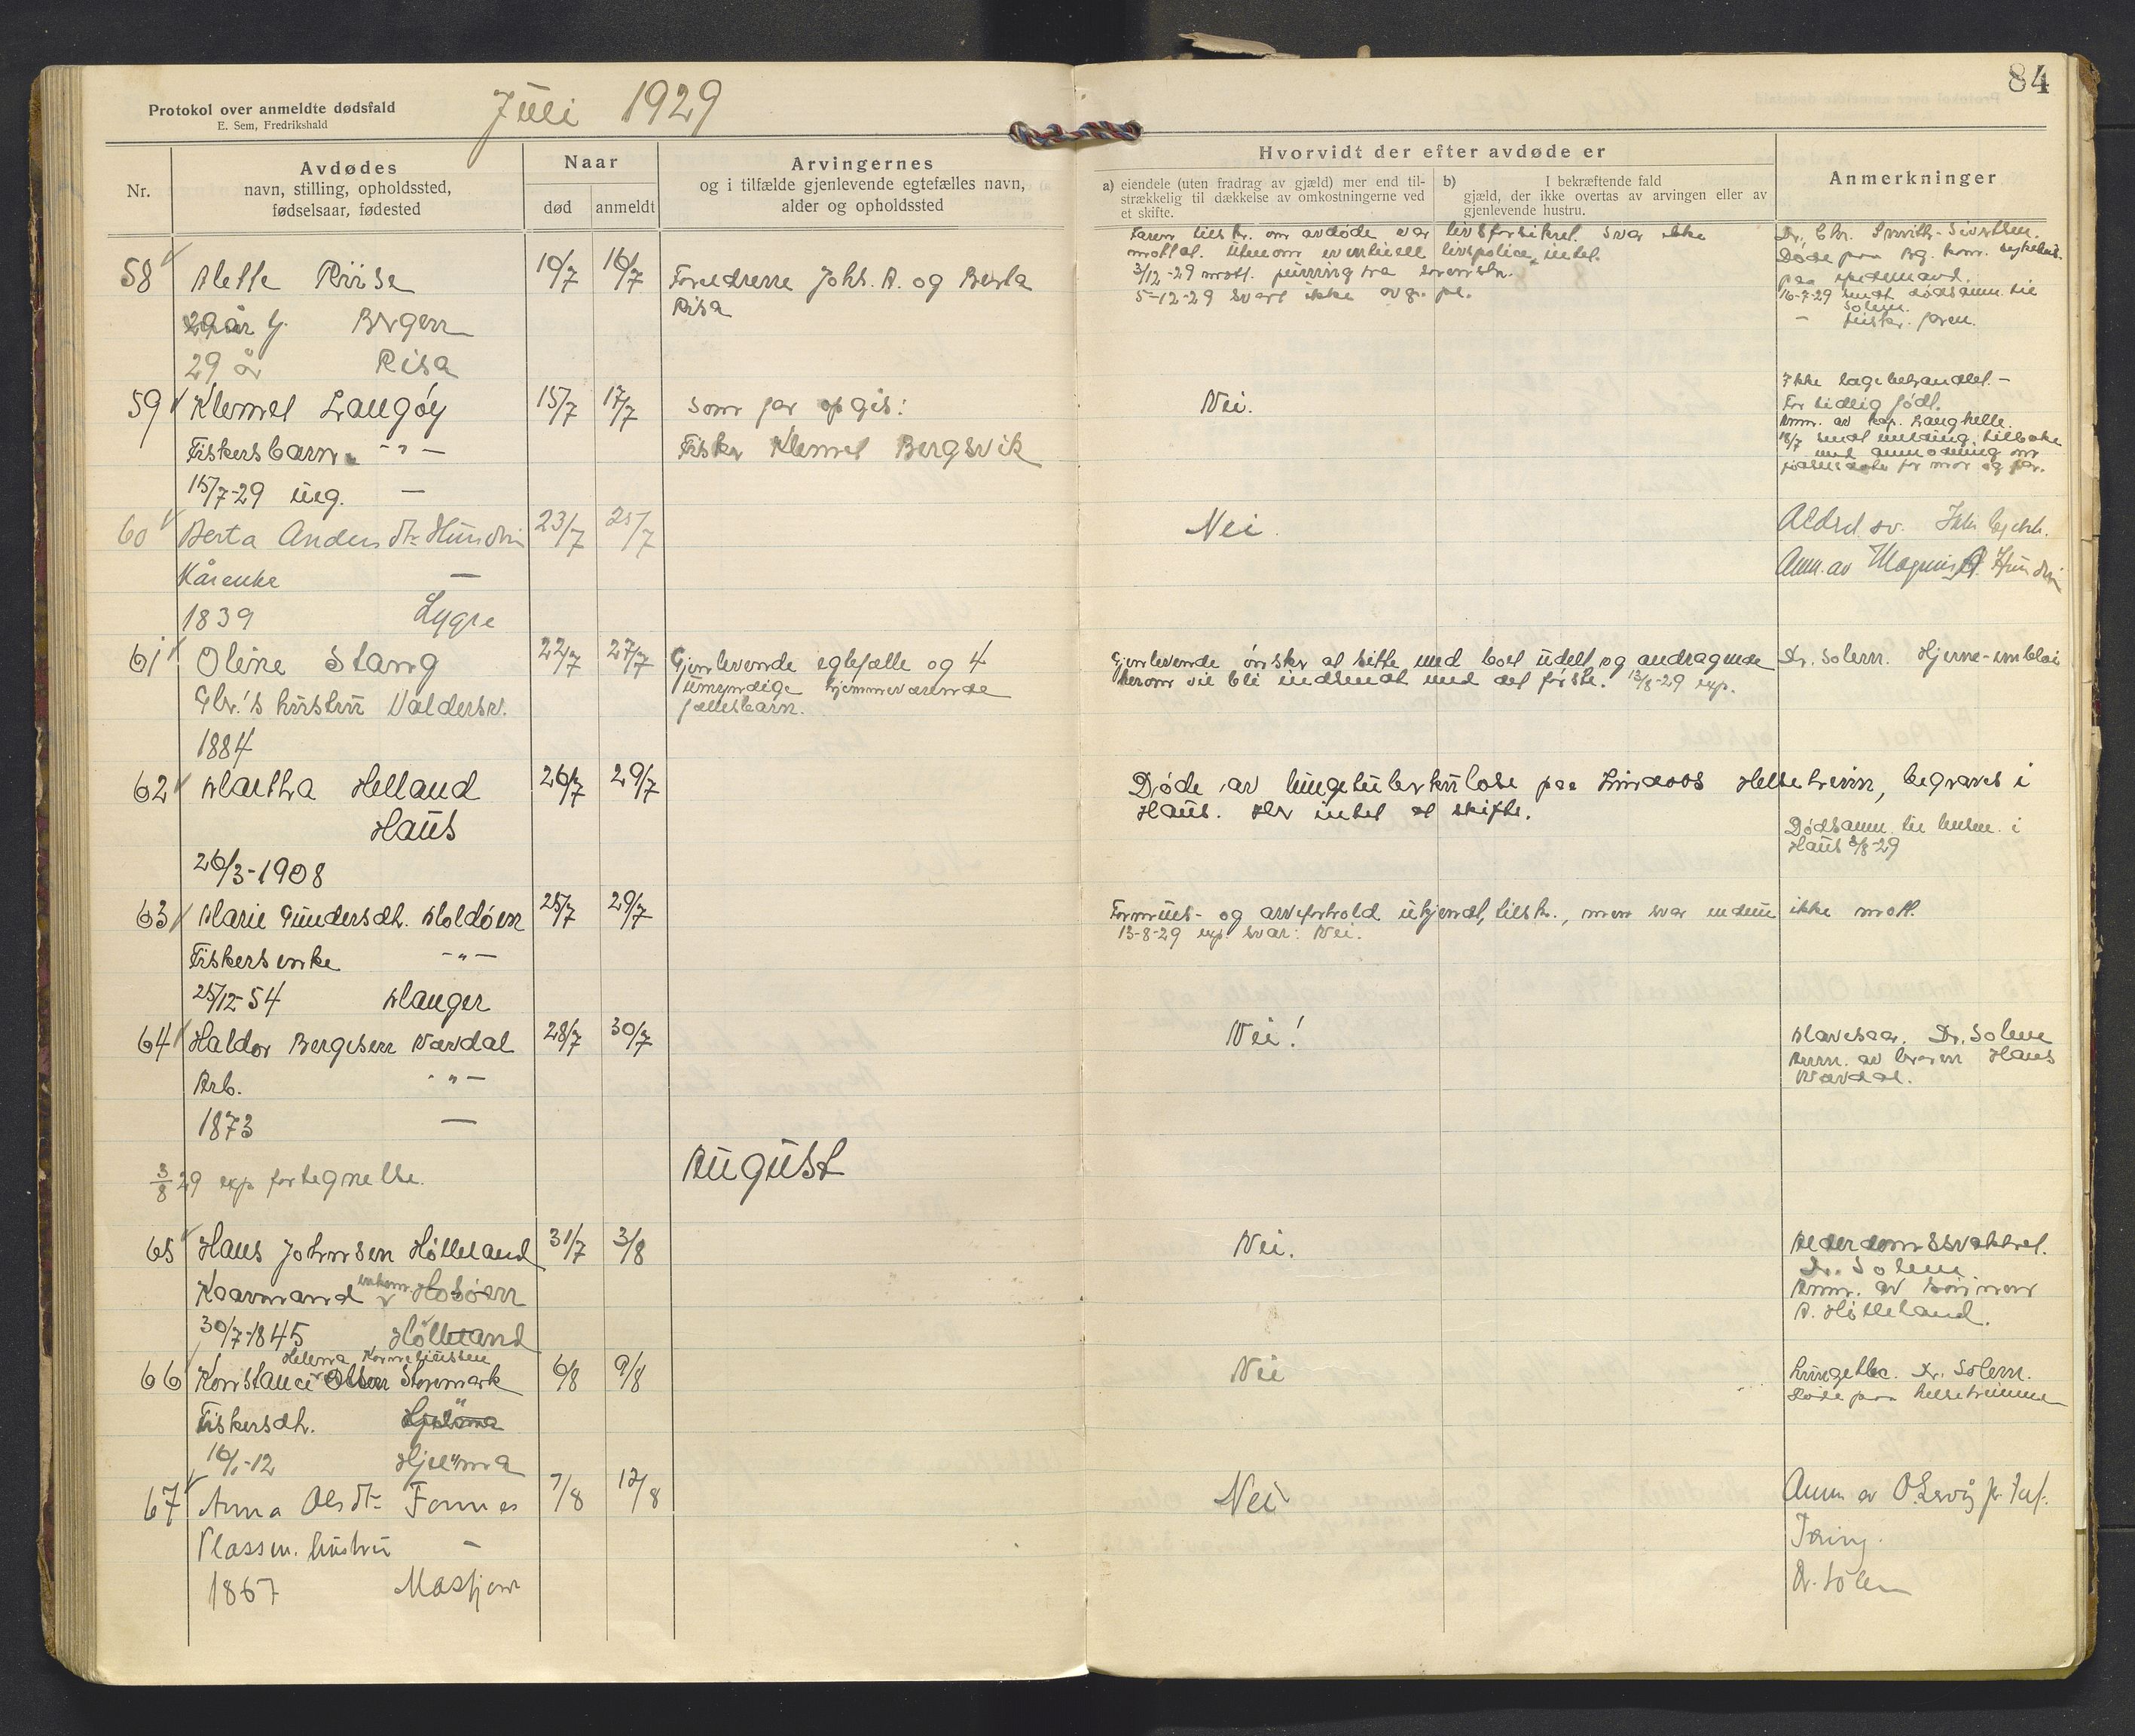 84
Protokol over anmeldte dødsfald
E. Sem, Fredrikshald
Juli 1929
Nr.
Avdødes
navn, stilling, opholdssted,
fødselsaar, fødested
Naar
død
anmeldt
Arvingernes
og i tilfælde gjenlevende egtefælles navn,
alder og opholdssted
Hvorvidt der efter avdøde er
a) eiendele (uten fradrag av gjæld) mer end til-
strækkelig til dækkelse av omkostningerne ved
et skifte.
b) I bekræftende fald
gjæld, der ikke overtas av arvingen eller av
gjenlevende hustru.
Anmerkninger
58 Alette Riise 10/7 16/7 Foreldrene Johs. A. og Berta
Risa
29 år g. Bergen
29 år Risa
Faren tilskr. om avdøde var livsforsikret. Svar ikke
mottat. Utenom eventuell livspolice intet.
3/12-29 mott.
5-12-29 svart ikke
Dr. Chr. Smith-Sivertsen.
Døde paa
paa epidemiavd.
16-7-29 sendt dødsanm. til
Solem.
- tilskr. faren.
59 Klemet Langøy 15/7 17/7 Som far opgis:
Fiskersbarn -"-
Fisker Klemet Bergsvik
15/7-29 ug. -
Nei.
Ikke lægebehandlet.-
For tidlig født.
Anm. av kap. Langhelle.
18/7 sendt melding tilbake
med anmodning om
fødselsdato for mor og far.
60 Berta Andersdtr Hundvin 23/7 25/7
Kårenke -
1839 Lygre
Nei.
Aldrd. sv. Ikke
Anm. av Magnus A. Hundvin
61 Oline Stang 22/7 27/7 Gjenlevende egtefælle og 4
umyndige hjemmeværende
fællesbarn.
Gbr.'s hustru Valdersv.
1884
Gjenlevende ønsker at sitte med boet udelt og andragende
herom vil bli indsendt med det første. 13/8-29 exp.
Dr. Solem. Hjerne-emboli
62 Martha Helland 26/7 29/7
Haus
26/3-1908
Døde av lungetuberkulose paa Lindaas Helseheim, begraves i
Haus. Her intet at skifte.
Dødsanm. til lensm. i
Haus 3/8-29
63 Marie Gundersdt. Moldøen 25/7 29/7
Fiskersenke -"-
25/12-54 Manger
Formues- og arveforhold ukjendt, tilskr., men svar endnu ikke mott.
13-8-29 exp. svar: Nei.
64 Haldor Bergesen Nævdal 28/7 30/7
Arb. -"-
1873 -
Nei!
Mavesaar. Dr. Solem
Anm. av broren Hans
Nævdal.
3/8 29 exp fortegnelse.
August
65 Hans Johnsen Hölleland 31/7 3/8
Kaarmand enkem. Hosöen
30/7-1845 Hölleland
Nei.
Alderdomssvakhet.
Dr. Solem
Anm. av sönnen
A. Hölleland.
66 Konstance Olsen Storemark 6/8 9/8
Helena Korneliussen
Fiskersdt. Hjelma
16/1-12 Hjelma
Nei
Lungetbc. Dr. Solem.
Døde paa helseheimen
67 Anna Olsdtr Fonnes 7/8 12/8
Plassm. hustru -
1867 Masfjorr
Nei
Anm av O. Leirvåg
Dr. Solem